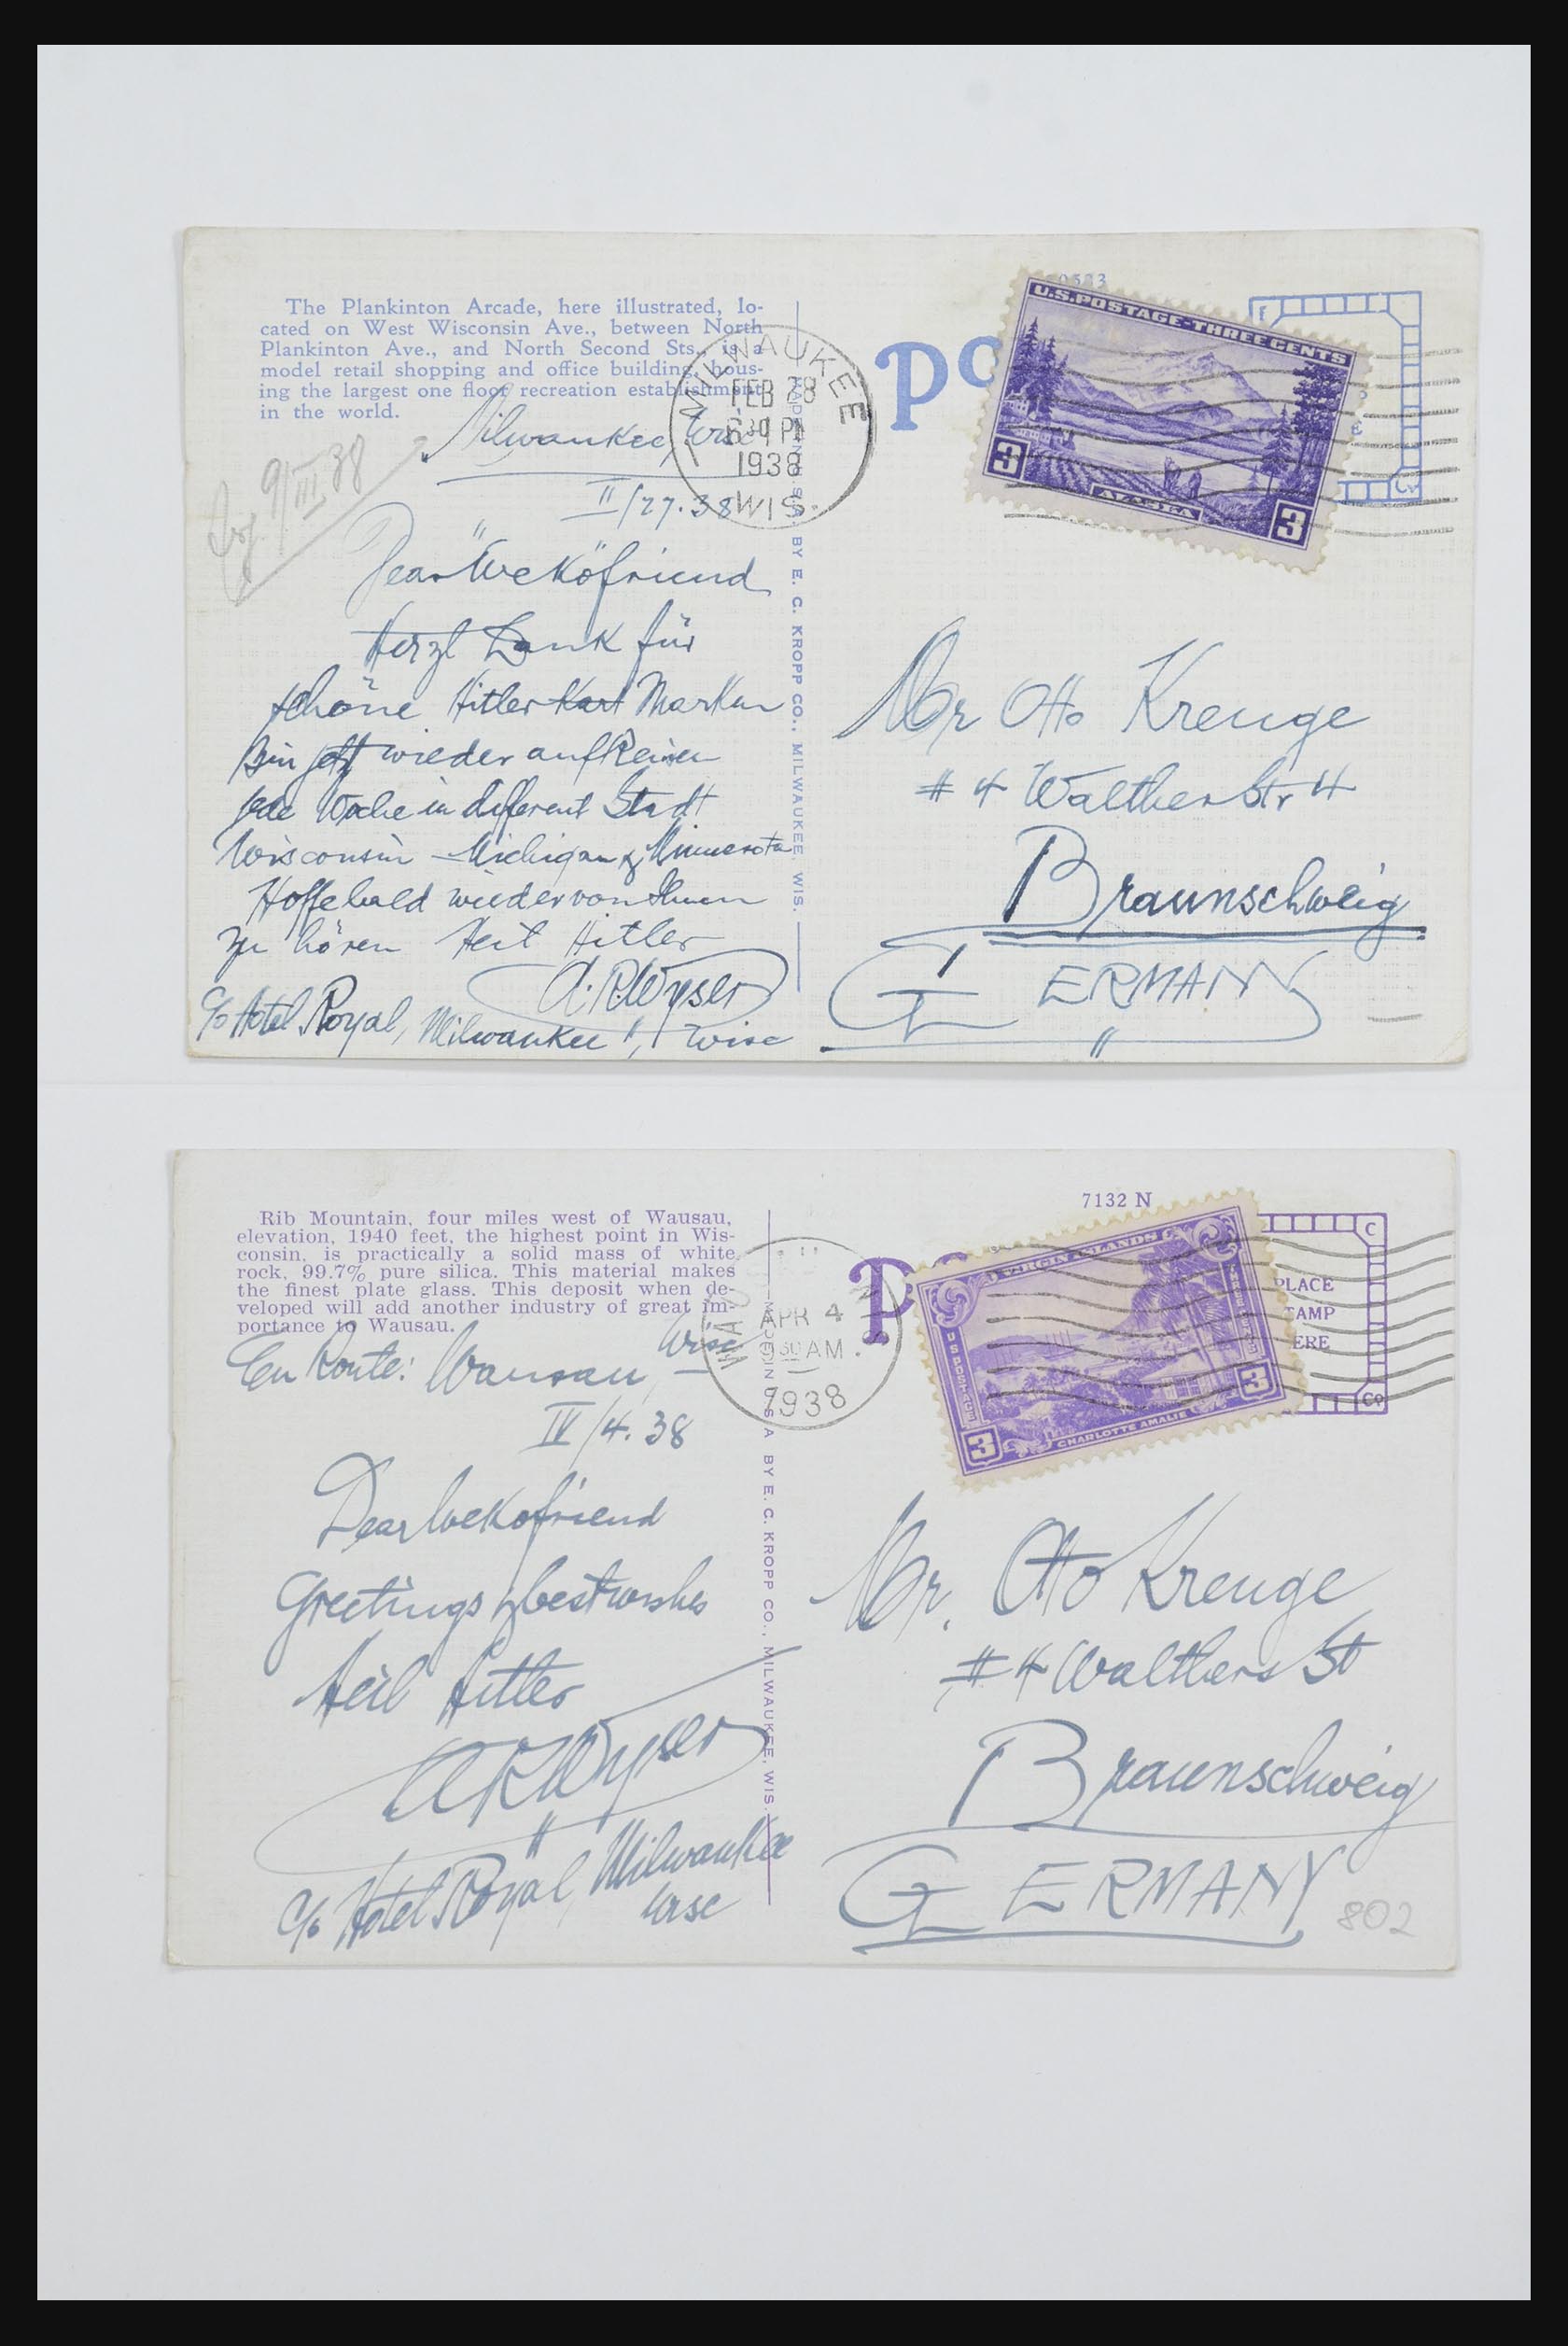 The Plankinton Arcade, here illustrated, lo-
cated on West Wisconsin Ave., between North
Plankinton Ave., and North Second Sts., is a
model retail shopping and office building, hous-
ing the largest one floor recreation establishment
in the world.
Milwaukee, Wisc
II/27.38
9/III 38
Dear "Wekö"friend
Herzl Dank für
schöne Hitler Kart Marken
Bin jetzt wieder auf Reisen
jede Woche in different Stadt
Wisconsin - Michigan & Minnesota
Hoffe bald wieder von Ihnen
zu hören Heil Hitler
A.R.Wyser
c/o Hotel Royal, Milwaukee, Wisc
MADE IN U.S.A. BY E. C. KROPP CO., MILWAUKEE, WIS.
MILWAUKEE
FEB 28
6 30 PM
1938
WIS.
PO
U.S. POSTAGE-THREE CENTS
3
ALASKA
3
Mr Otto Kreuge
# 4 Walther Str 4
Braunschweig
GERMANY
Rib Mountain, four miles west of Wausau,
elevation, 1940 feet, the highest point in Wis-
consin, is practically a solid mass of white
rock, 99.7% pure silica. This material makes
the finest plate glass. This deposit when de-
veloped will add another industry of great im-
portance to Wausau.
En Route: Wausau, Wisc
IV/4. 38
Dear Wekofriend
Greetings & best wishes
Heil Hitler
A R Wyser
c/o Hotel Royal, Milwaukee
Wisc
MADE IN U.S.A. BY E. C. KROPP CO., MILWAUKEE, WIS.
WAU
APR 4
30 AM
1938
7132 N
PO
VIRGIN ISLANDS
U S POSTAGE
THREE CENTS
3
CHARLOTTE AMALIE
3
C
PLACE
TAMP
ERE
Co
Mr. Otto Kreuge
# 4 Walthers St
Braunschweig
GERMANY
802